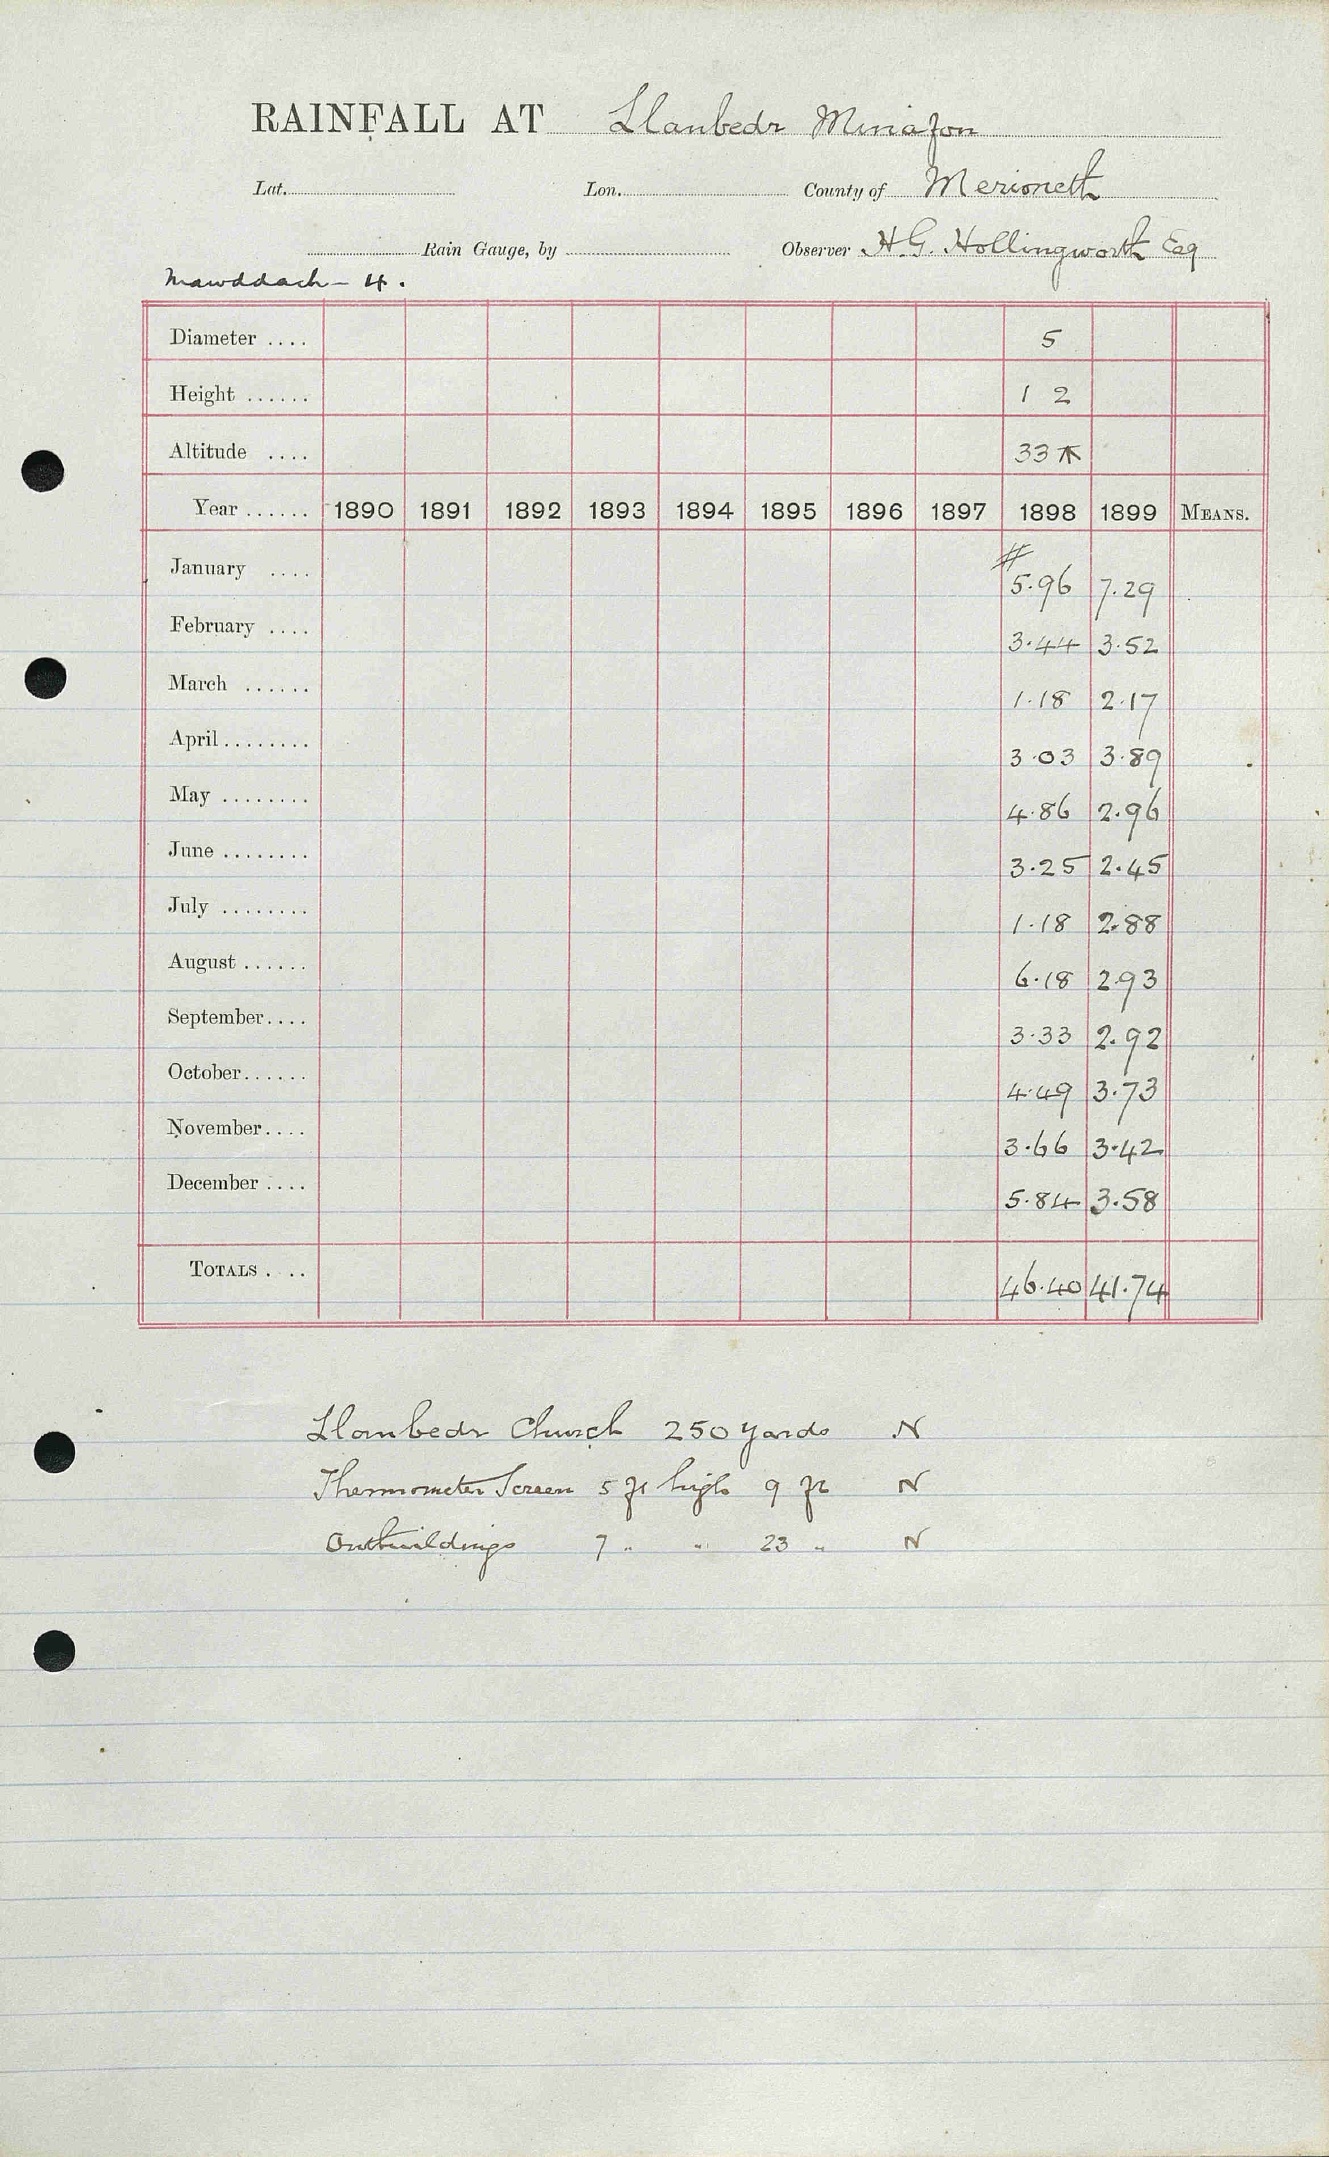 RAINFALL AT Llanbedr Miniafon
Lat. Lon. County of Merioneth
Rain Gauge, by Observer H.G. Hollingworth Esq
Mawddach - 4.
Diameter .... 5
Height ...... 1 2
Altitude .... 33
Year ...... 1890 1891 1892 1893 1894 1895 1896 1897 1898 1899 MEANS.
#
January .... 5.96 7.29
February .... 3.44 3.52
March ...... 1.18 2.17
April ........ 3.03 3.89
May ........ 4.86 2.96
June ........ 3.25 2.45
July ........ 1.18 2.88
August ...... 6.18 2.93
September.... 3.33 2.92
October...... 4.49 3.73
November.... 3.66 3.42
December .... 5.84 3.58
TOTALS . .. 46.40 41.74
Llanbedr Church 250 yards N
Thermometer Screen 5 ft high 9 ft N
Outbuildings 7 " " 23 " N